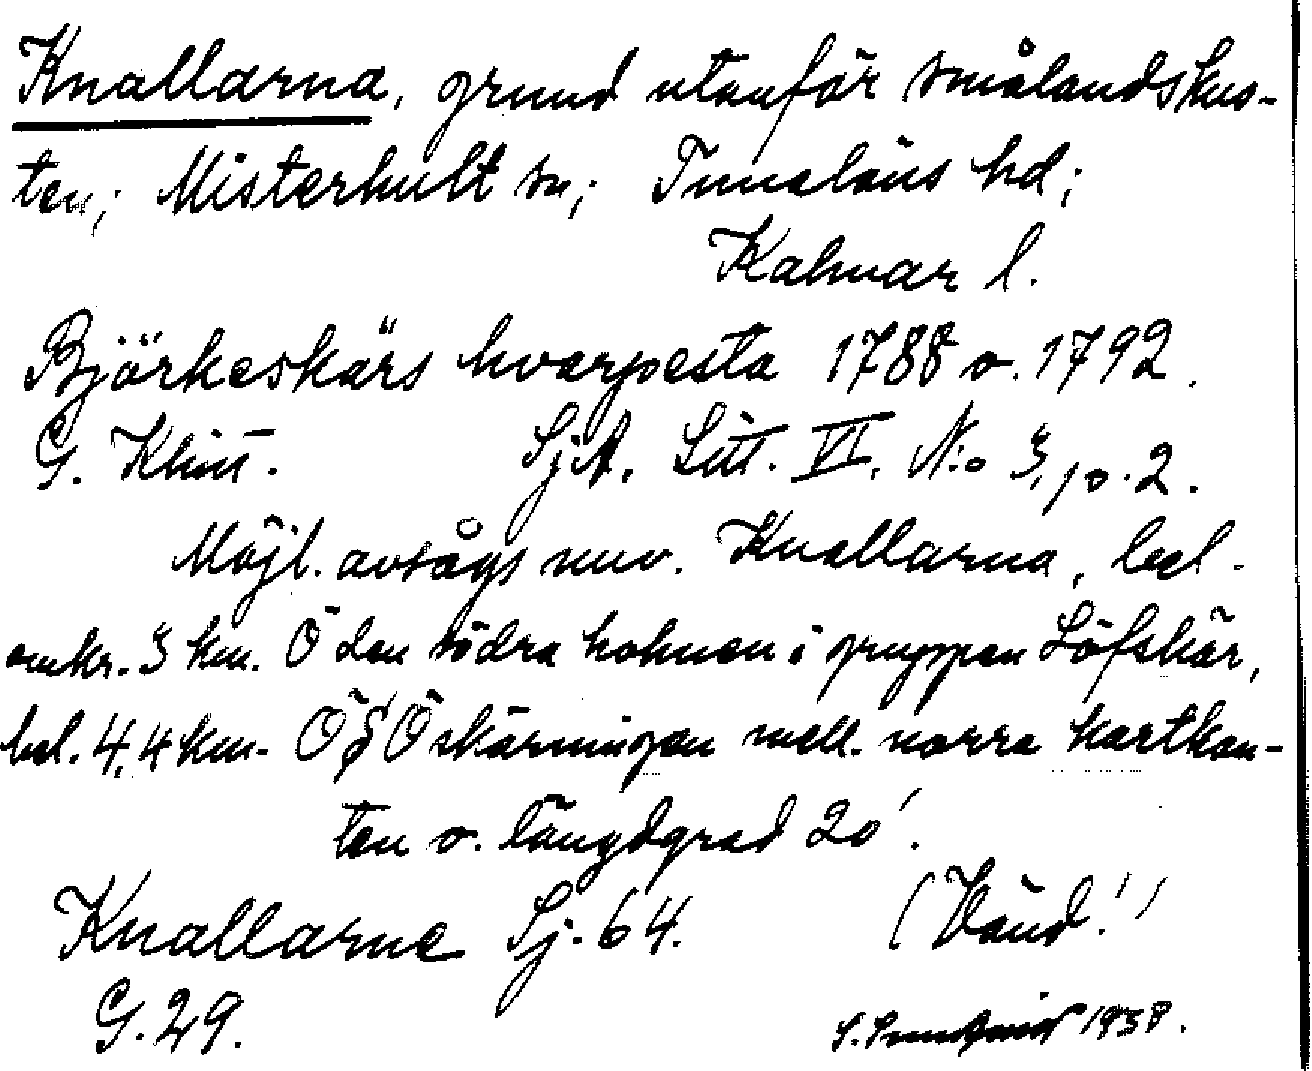 Knallarna, grund utanför smålandskus-
ten; Misterhult sn; Tunaläns hd;
Kalmar l.
Björkeskärs hvarpesta 1788 o. 1792.
G. Klint. SjA. Litt. VI. N:o 3, p. 2.
Möjl. avsågs nuv. Knallarna, bel.
omkr. 3 km. Ö den södra holmen i gruppen Löfskär,
bel. 4,4 km. ÖSÖ skärningen mell. norra kartkan-
ten o. längdgrad 20'.
Knallarne Sj. 64. (Vänd!)
G. 29.
1938.